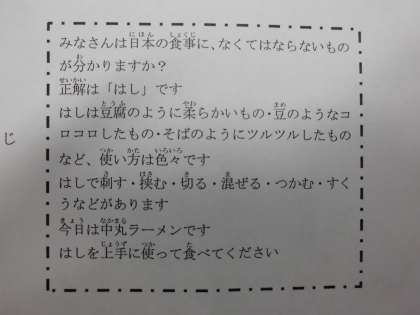 みなさんは日本の食事に、なくてはならないもの
が分かりますか？
正解は「はし」です
はしは豆腐のように柔らかいもの・豆のようなコ
ロコロしたもの・そばのようにツルツルしたもの
など、使い方は色々です
はしで刺す・挟む・切る・混ぜる・つかむ・すく
うなどがあります
今日は中丸ラーメンです
はしを上手に使って食べてください
じ